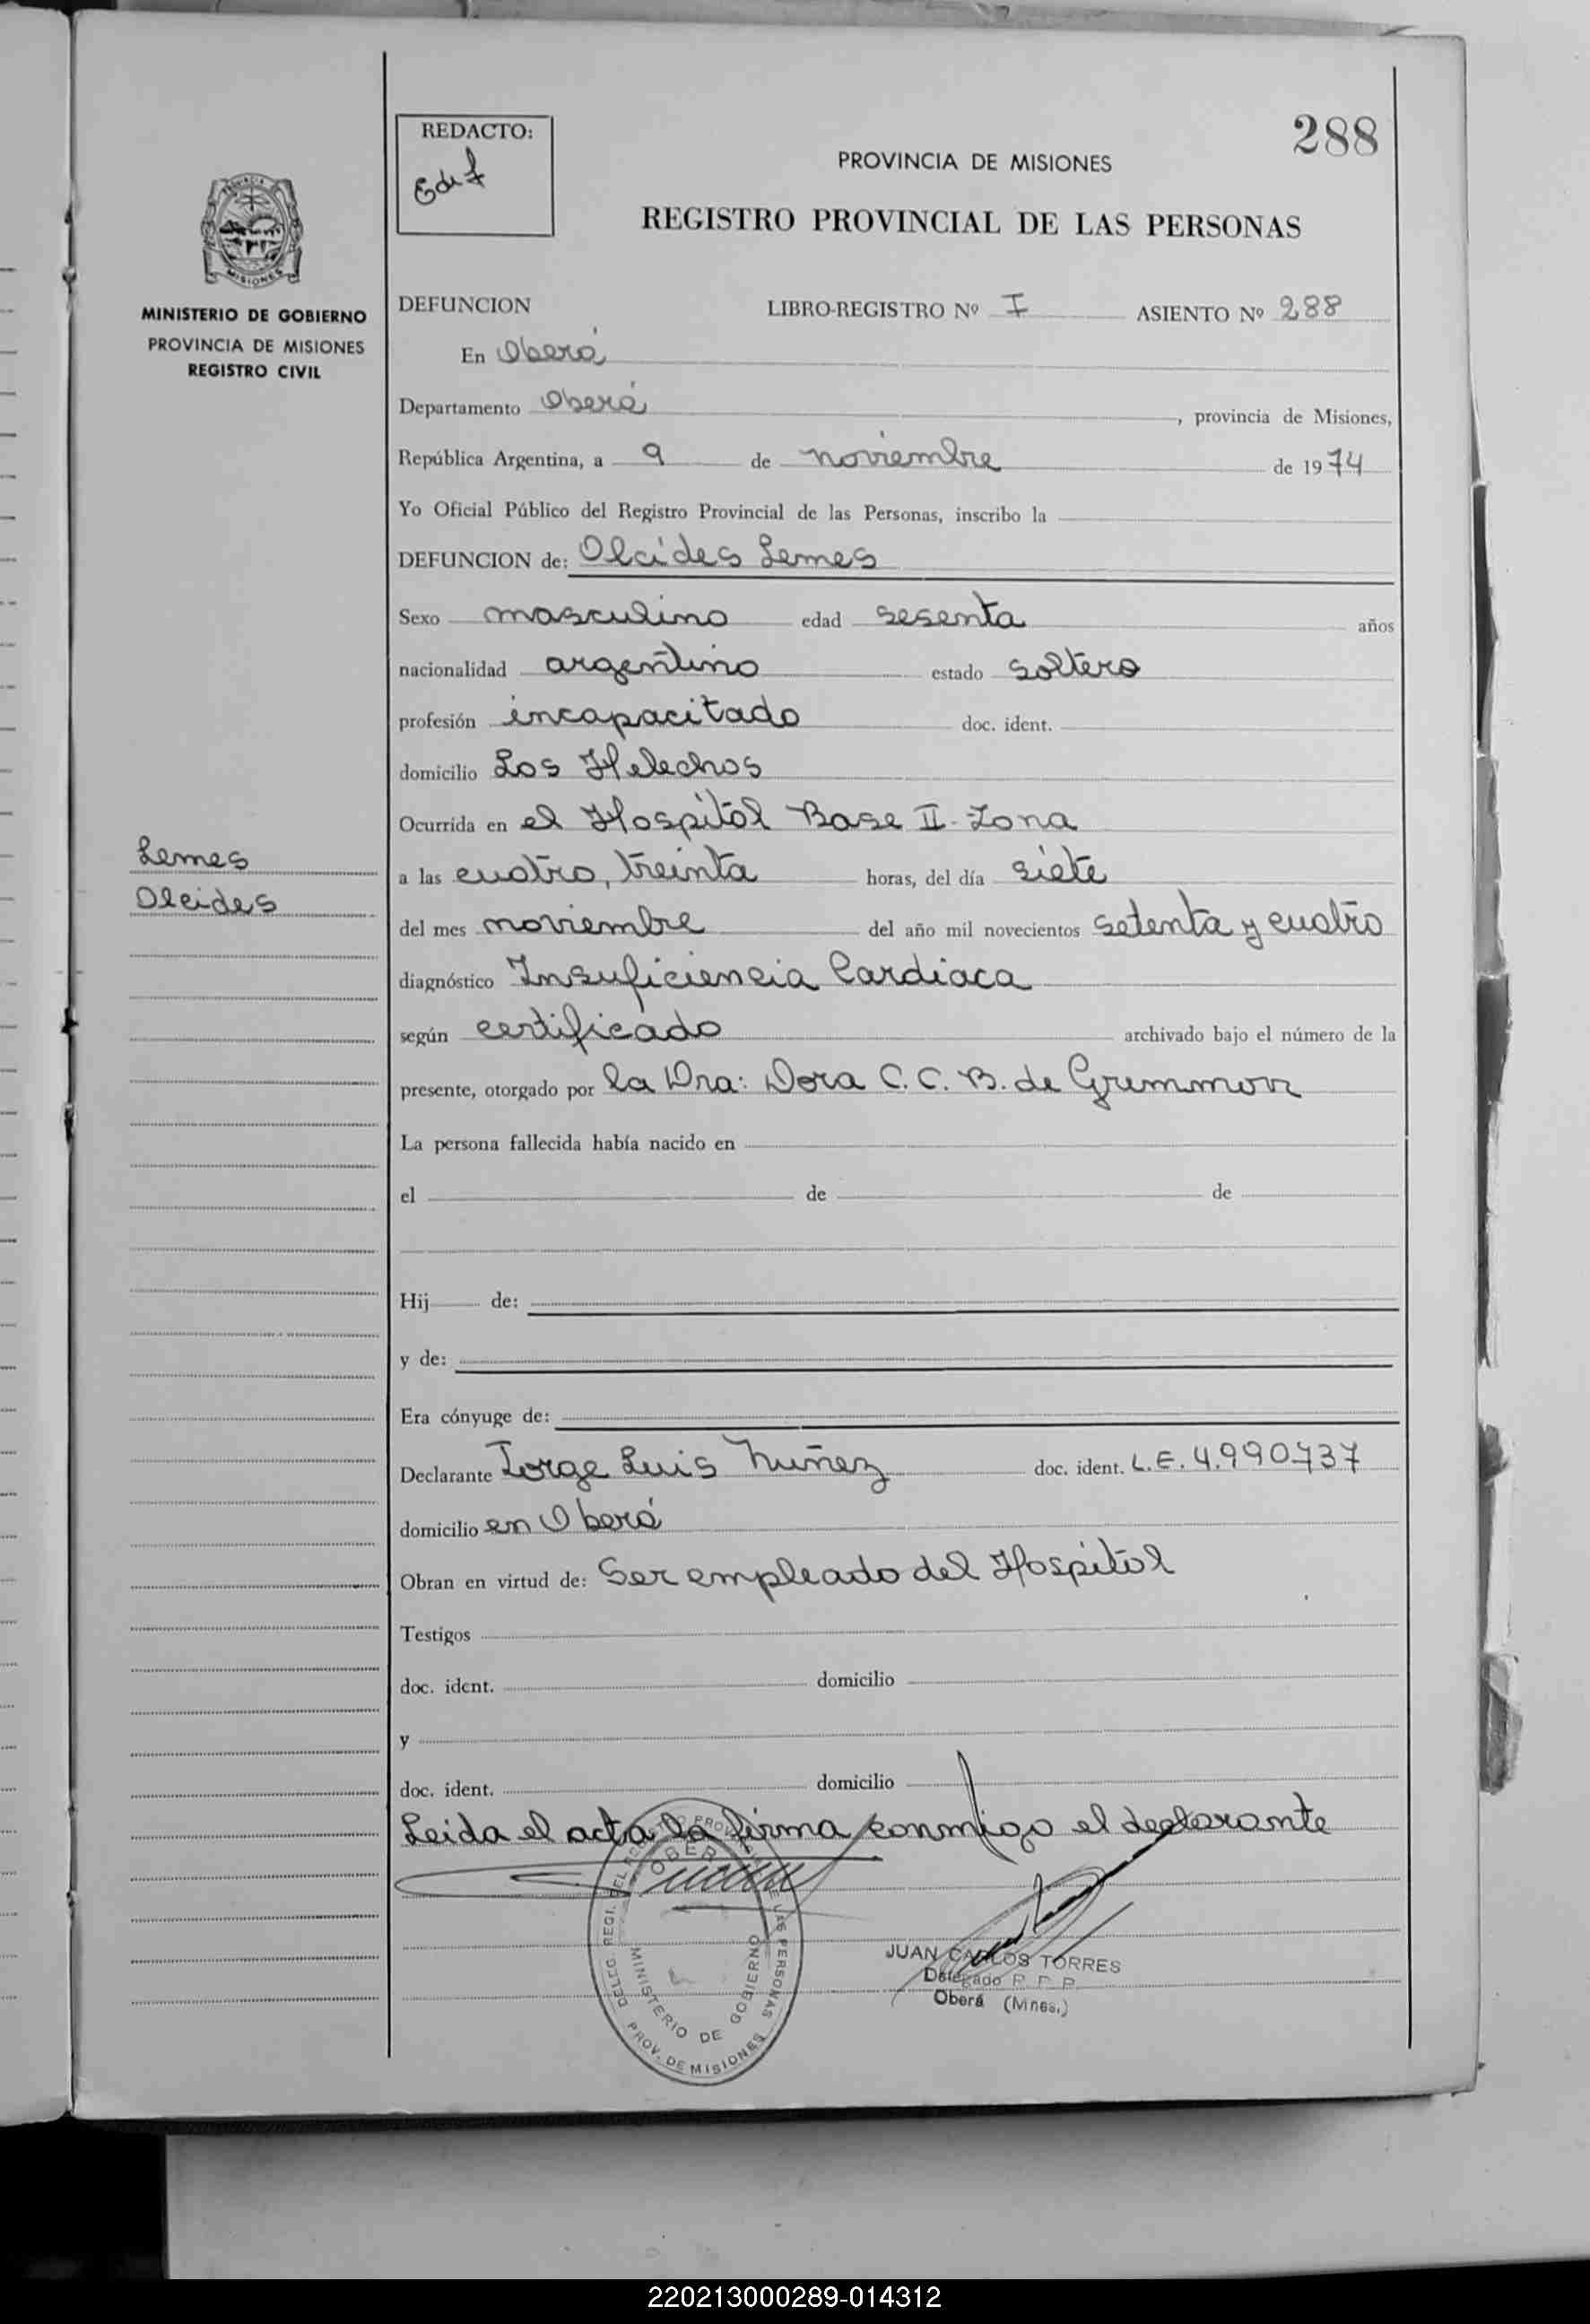 288
REDACTO:
PROVINCIA DE MISIONES
REGISTRO PROVINCIAL DE LAS PERSONAS
MISIONES
MINISTERIO DE GOBIERNO
PROVINCIA DE MISIONES
REGISTRO CIVIL
DEFUNCION LIBRO-REGISTRO Nº I ASIENTO Nº 288
En Oberá
Departamento Oberá, provincia de Misiones,
República Argentina, a 9 de noviembre de 1974
Yo Oficial Público del Registro Provincial de las Personas, inscribo la
DEFUNCION de: Olcides Lemes
Sexo masculino edad sesenta años
nacionalidad argentino estado soltero
profesión incapacitado doc. ident.
domicilio Los Helechos
Ocurrida en el Hospital Base II-Zona
Lemes
Olcides
a las cuatro, treinta horas, del día siete
del mes noviembre del año mil novecientos setenta y cuatro
diagnóstico Insuficiencia Cardiaca
según certificado archivado bajo el número de la
presente, otorgado por la Dra: Dora C. C. B. de
La persona fallecida había nacido en
el de de
Hij de:
y de:
Era cónyuge de:
Declarante Jorge Luis Nuñez doc. ident. L.E. 4.990.737
domicilio en Oberá
Obran en virtud de: Ser empleado del Hospital
Testigos
doc. ident. domicilio
y
doc. ident. domicilio
Leida el acta la firma conmigo el declarante
OBERA
MINISTERIO DE GOBIERNO
PROV. DE MISIONES
JUAN CARLOS TORRES
Delegado R. P. P.
Oberá (Mnes.)
220213000289-014312